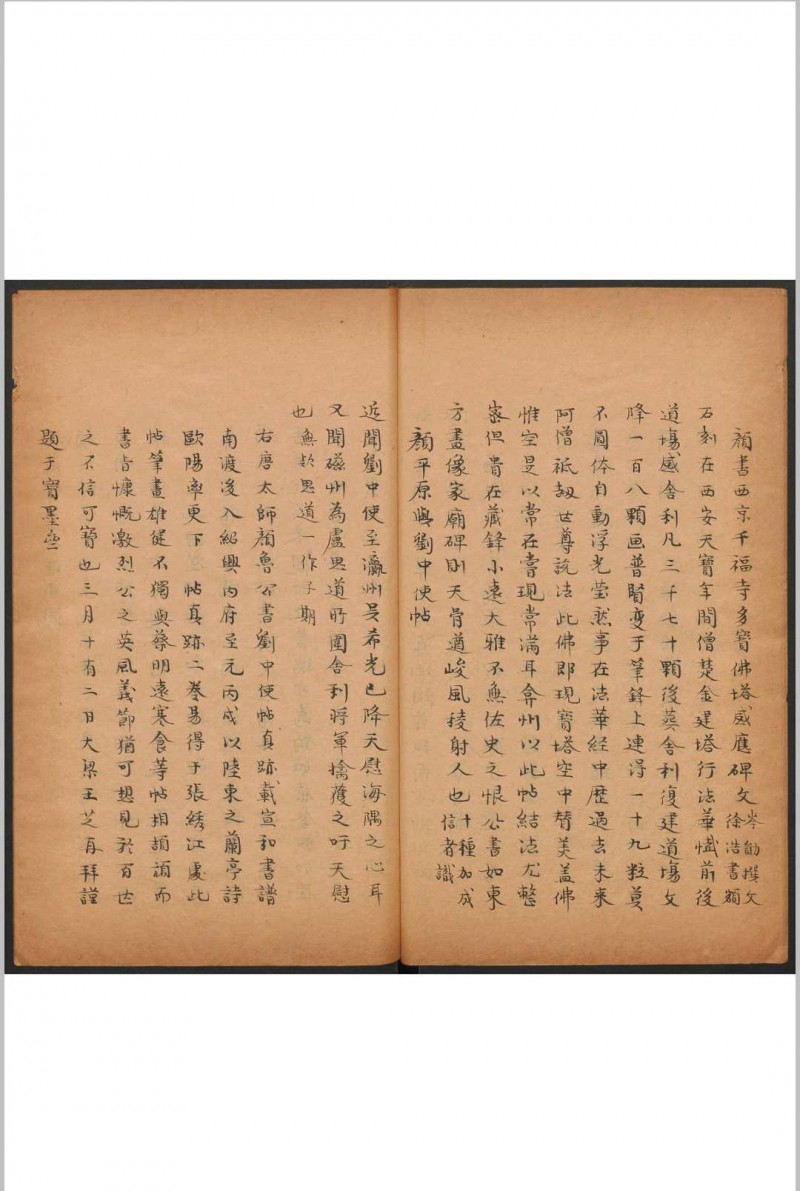 顏書西京千福寺多寶佛塔感應碑文岑勛撰文徐浩書額
石刻在西安天寶年間僧楚金建塔行法華懴前後
道塲感舍利凡三千七十顆後葬舍利復建道塲又
降一百八顆画普賢变于筆鋒上連得一十九粒莫
不圓体自動浮光莹然事在法華经中歷過去未来
阿僧祇刼世尊説法此佛即現寳塔空中賛美盖佛
惟空是以常在嘗現常满耳弇州以此帖結法尤整
宻但貴在藏鋒小遠大雅不無佐史之恨公書如東
方畫像家廟碑則天骨遒峻風稜射人也十種加成信者識
顏平原與劉中使帖
近聞劉中使至瀛州吳希光已降天慰海隅之心耳
又聞磁州為盧思道所圍舍利將軍擒獲之吁天慰
也無欵思道一作子期
右唐太師顏魯公書劉中使帖真跡載宣和書譜
南渡後入紹興内府至元丙戌以陸柬之蘭亭詩
歐陽率更下帖真跡二卷易得于張綉江處此
帖筆畫雄健不獨與蔡明遠寒食等帖相頡頏而
書旨慷慨激烈公之英風義節猶可想見於百世
之下信可寳也三月十有二日大梁王芝再拜謹
題于寳墨齋